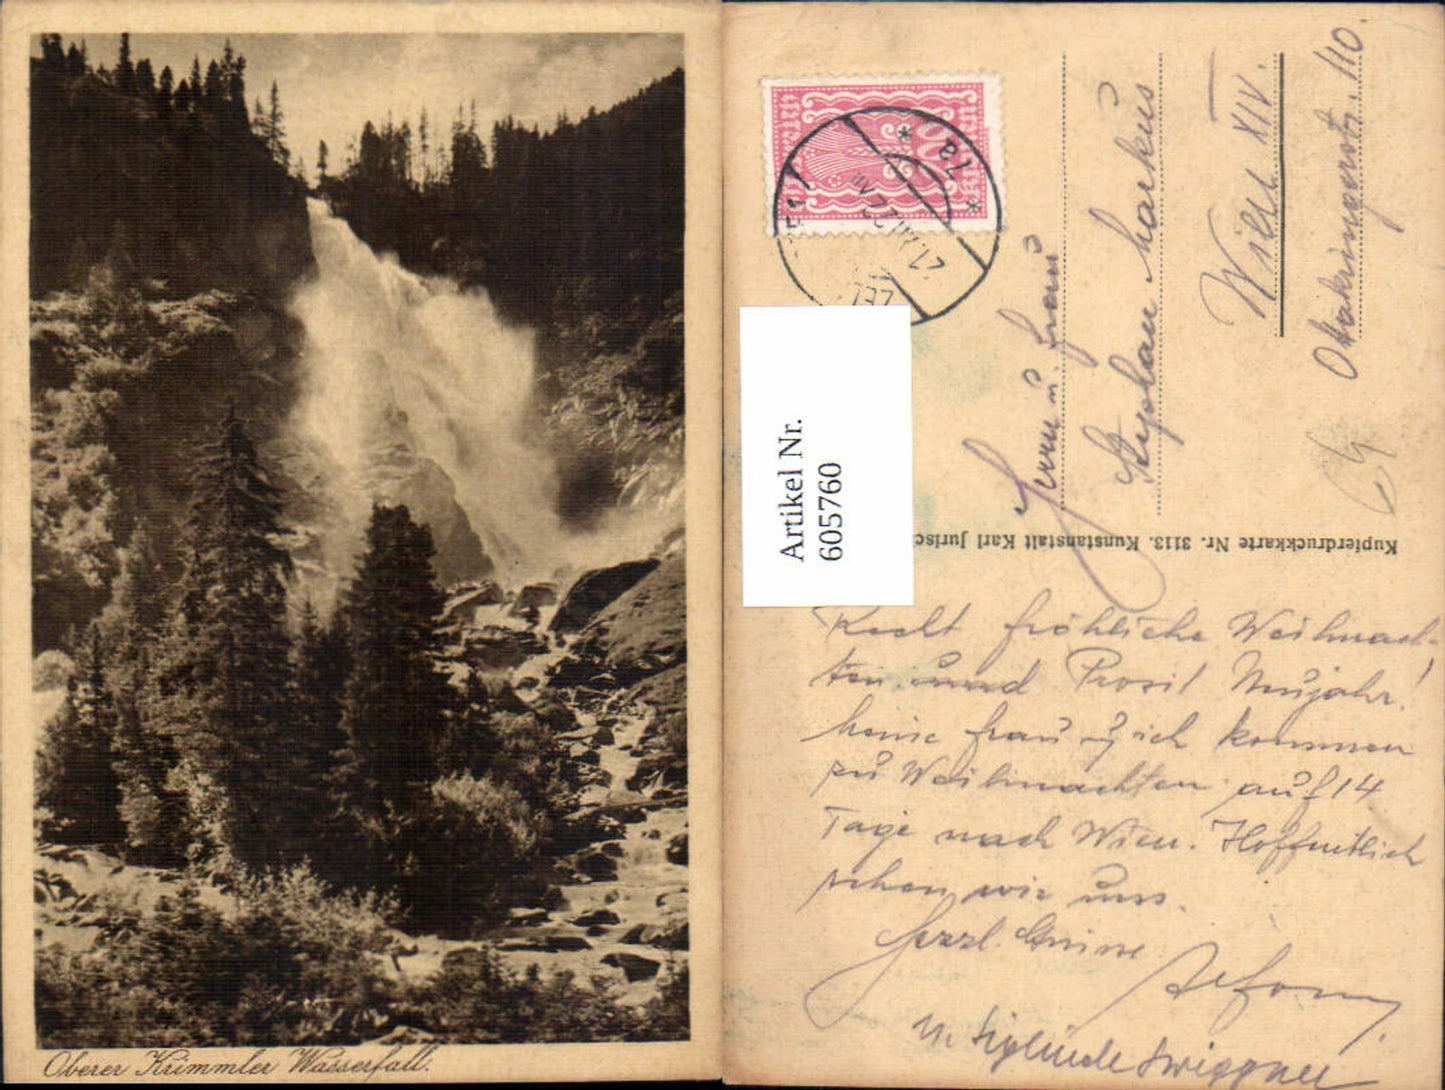 Oberer Krimmler Wasserfall.
21.XII.22
1a
Artikel Nr.
605760
Herrn u. Frau
Stephan Markus
Wien XIV.
Ottakringerstr. 110.
Kupferdruckkarte Nr. 3113. Kunstanstalt Karl Jurisc
Recht fröhliche Weihnach-
ten und Prosit Neujahr!
Meine Frau u. ich kommen
zu Weihnachten auf 14
Tage nach Wien. Hoffentlich
sehen wir uns.
Herzl. Grüsse